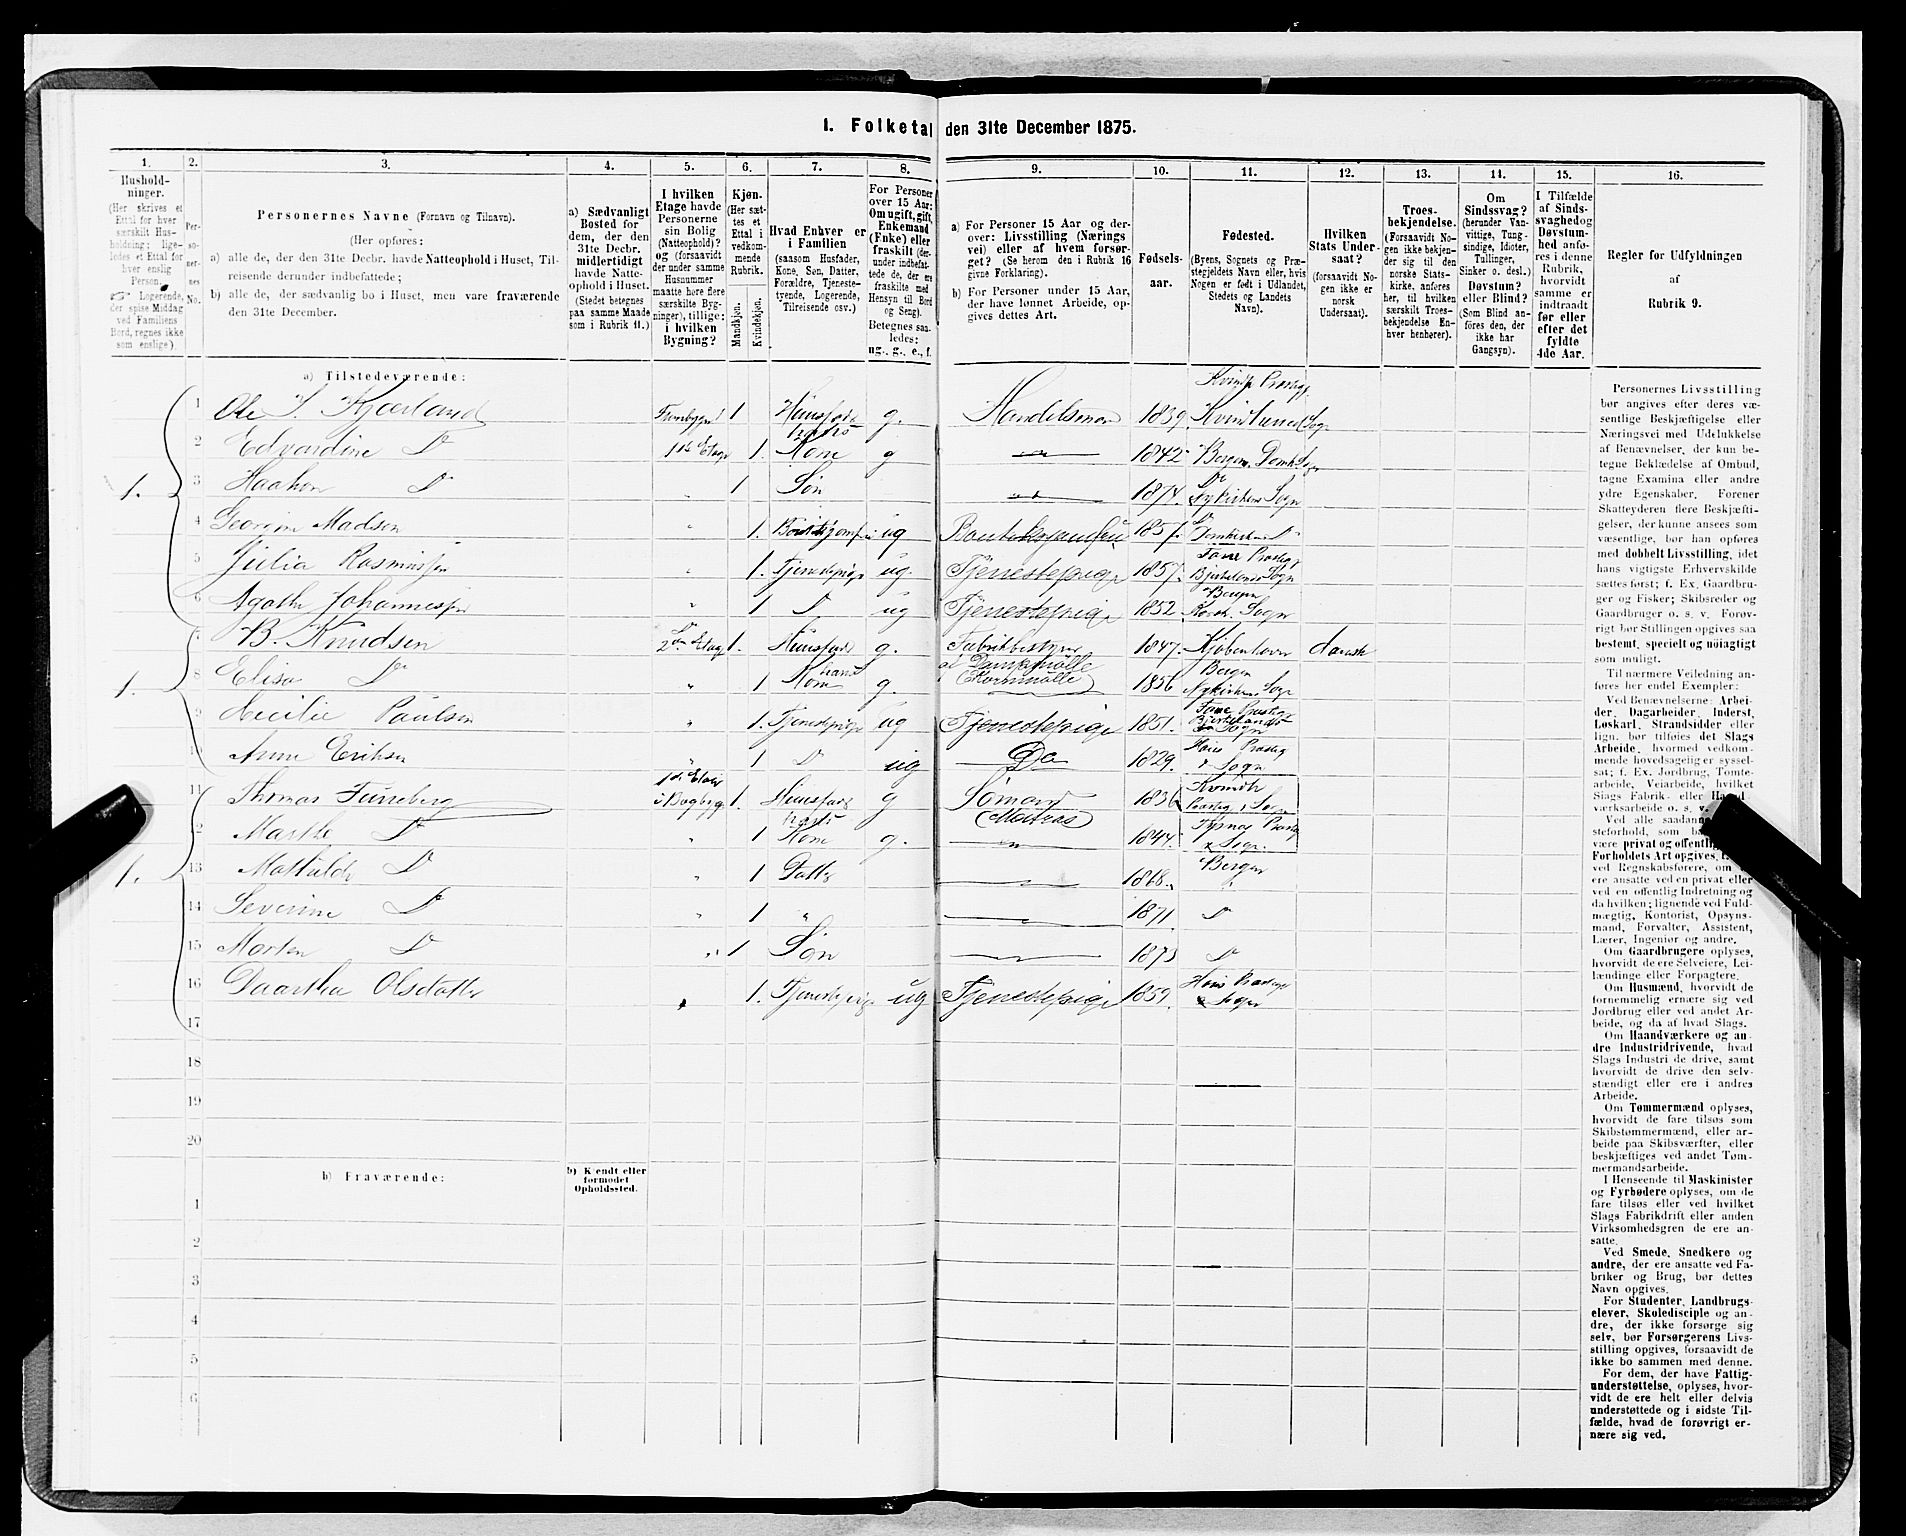 I. Folketal den 31te December 1875.
1.
Hushold-
ninger.
(Her skrives et
Ettal for hver
særskilt Hus-
holdning; lige-
ledes et Ettal for
hver enslig
Person.
☞ Logerende,
der spise Middag
ved Familiens
Bord, regnes ikke
som enslige).
2.
Per-
so-
ner-
nes
No.
3.
Personernes Navne (Fornavn og Tilnavn).
(Her opføres:
a) alle de, der den 31te Decbr. havde Natteophold i Huset, Til-
reisende derunder indbefattede;
b) alle de, der sædvanlig bo i Huset, men vare fraværende
den 31te December.
4.
a) Sædvanligt
Bosted for
dem, der den
31te Decbr.
midlertidigt
havde Natte-
ophold i Huset.
(Stedet betegnes
paa samme Maade
som i Rubrik 11.)
5.
I hvilken
Etage havde
Personerne
sin Bolig
(Natteophold)?
og (forsaavidt
der under samme
Husnummer
maatte høre flere
særskilte Byg-
ninger), tillige:
i hvilken
Bygning?
6.
Kjøn.
(Her sæt-
tes et
Ettal i
vedkom-
mende
Rubrik.
Mandkjøn.
Kvindekjøn.
7.
Hvad Enhver er
i Familien
(saasom Husfader,
Kone, Søn, Datter,
Forældre, Tjeneste-
tyende, Logerende,
Tilreisende osv.)
8.
For Personer
over 15 Aar:
Om ugift, gift,
Enkemand
(Enke) eller
fraskilt (der-
under indbefat-
tede de, der ere
fraskilte med
Hensyn til Bord
og Seng).
Betegnes saa-
ledes:
ug., g., e., f.
9.
a) For Personer 15 Aar og der-
over: Livsstilling (Nærings
vei) eller af hvem forsør-
get? (Se herom den i Rubrik 16
givne Forklaring).
b) For Personer under 15 Aar,
der have lønnet Arbeide, op-
gives dettes Art.
10.
Fødsels-
aar.
11.
Fødested.
(Byens, Sognets og Præ-
stegjeldets Navn eller, hvis
Nogen er født i Udlandet,
Stedets og Landets
Navn).
12.
Hvilken
Stats Under-
saat?
(forsaavidt No-
gen ikke er
norsk
Undersaat).
13.
Troes-
bekjendelse.
(Forsaavidt No-
gen ikke bekjen-
der sig til den
norske Stats-
kirke, anføres
her, til hvilken
særskilt Troes-
bekjendelse En-
hver henhører).
14.
Om
Sindssvag?
(herunder Van-
vittige, Tung-
sindige, Idioter,
Tullinger,
Sinker o. desl.)
Døvstum?
eller Blind?
(Som Blind an-
føres den, der
ikke har
Gangsyn).
15.
I Tilfælde
af Sinds-
svaghed og
Døvstum-
hed anfø-
res i denne
Rubrik,
hvorvidt
samme er
indtraadt
før eller
efter det
fyldte
4de Aar.
16.
Regler for Udfyldningen
af
Rubrik 9.
a) Tilstedeværende:
Kvinds Præstegj
1 Ole S. Kjærland 1 Huusfader g. Handelsmand 1839. Sogn
2 Edvardine Do 1ste Etage 1. hans Kone g 1842 Bergen Domk Sogn
1. 3 Haakon Do 1 Søn 1874. Do Nykirkens Sogn
4 Georgine Madsen 1. ug 1857. Do Domkirkens Do
5 Julia Rasmussen 1. Tjenestepige ug. Tjenestepige 1857. Fane Præsteg Sogn
6 Agathe Johannesen 1 Do ug Tjenestepige 1852 Bergen Kors. Sogn
7 B. Knudsen Do 2den Etage 1. Huusfader g. Fabrikbestyrer 1847. Kjøbenhavn dansk
1. 8 Elisa Do 1 hans Kone g. Dampmølle Kornmølle 1856 Bergen Nykirkens Sogn
9 Cecilie Paulsen 1. Tjenestepige ug Tjenestepige 1851. Fane Præsteg Sogn
10 Anne Eriksen 1 Do ug Do 1829. Præsteg Sogn
11 Thomas Funeberg 1ste Etage i Bagbyg. 1. Huusfader g Sømand Matros 1836 Præsteg Sogn
12 Marthe Do 1 hans Kone g. 1844 Tysnæs Præsteg Sogn.
1. 13 Mathilde Do 1 Datter 1868. Bergen
14 Severine Do 1 " 1871 Do
15 Morten Do 1 Søn 1873 Do
16 Daartha Olsdatter 1. Tjenestepige ug Tjenestepige 1859. Præsteg Sogn
17
18
19
20
b) Fraværende:
b) Kjendt eller
formodet
Opholdssted.
1
2
3
4
5
6
Personernes Livsstilling
bør angives efter deres væ-
sentlige Beskjæftigelse eller
Næringsvei med Udelukkelse
af Benævnelser, der kun be-
tegne Beklædelse af Ombud,
tagne Examina eller andre
ydre Egenskaber. Forener
Skatteyderen flere Beskjæfti-
gelser, der kunne ansees som
væsentlige, bør han opgives
med dobbelt Livsstilling, idet
hans vigtigste Erhvervskilde
sættes først; f. Ex. Gaardbru-
ger og Fisker; Skibsreder og
Gaardbruger o. s. v. Forøv-
rigt bør Stillingen opgives saa
bestemt, specielt og nøiagtigt
som muligt.
Til nærmere Veiledning an-
føres her endel Exempler:
Ved Benævnelserne: Arbei-
der, Dagarbeider, Inderst,
Løskarl, Strandsidder eller
lign. bør tilføies det Slags
Arbeide, hvormed vedkom-
mende hovedsagelig er syssel-
sat; f. Ex. Jordbrug, Tomte-
arbeide, Veiarbeide, hvilket
Slags Fabrik- eller
værksarbeide o. s. v.
Ved alle
steforhold, som
være privat og offentlig,
Forholdets Art opgives,
ved Regnskabsførere, om
ere ansatte ved en privat eller
ved en offentlig Indretning og
da hvilken; lignende ved Fuld-
mægtig, Kontorist, Opsyns-
mand, Forvalter, Assistent,
Lærer, Ingeniør og andre.
Om Gaardbrugere oplyses,
hvorvidt de ere Selveiere, Lei-
lændinge eller Forpagtere.
Om Husmænd, hvorvidt de
fornemmelig ernære sig ved
Jordbrug eller ved andet Ar-
beide, og da af hvad Slags.
Om Haandværkere og an-
dre Industridrivende, hvad
Slags Industri de drive, samt
hvorvidt de drive den selv-
stændigt eller ere i andres
Arbeide.
Om Tømmermænd oplyses,
hvorvidt de fare tilsøs som
Skibstømmermænd, eller ar-
beide paa Skibsværfter, eller
beskjæftiges ved andet Tøm-
mermandsarbeide.
I Henseende til Maskinister
og Fyrbødere oplyses, om de
fare tilsøs eller ved hvilket
Slags Fabrikdrift eller anden
Virksomhedsgren de ere an-
satte.
Ved Smede, Snedkere og
andre, der ere ansatte ved Fa-
briker og Brug, bør dettes
Navn opgives.
For Studenter, Landbrugs-
elever, Skoledisciple og an-
dre, der ikke forsørge sig
selv, bør Forsørgerens Livs-
stilling opgives, forsaavidt de
ikke bo sammen med denne.
For dem, der have Fattig-
understøttelse, oplyses, hvor-
vidt de ere helt eller delvis
understøttede og i sidste Til-
fælde, hvad de forøvrigt er-
nære sig ved.